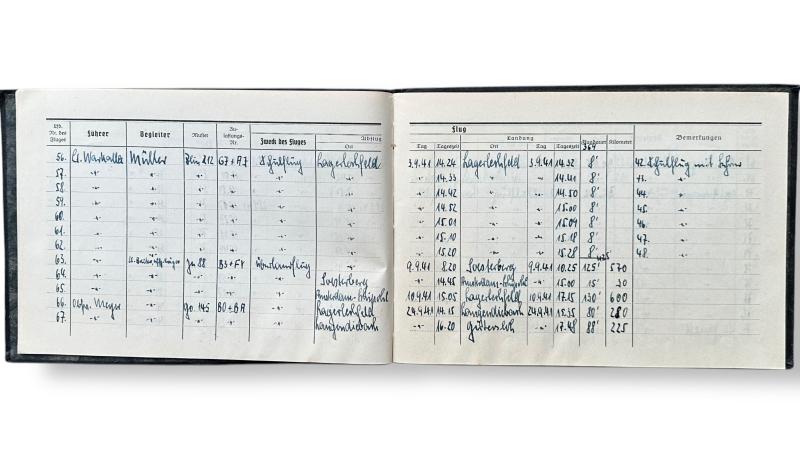 Lfd. Nr. des Fluges Führer Begleiter Muster Zu-lassungs-Nr. Zweck des Fluges Abflug Ort
56. Lt. Warkalla Müller 212 G7+AJ Schulflug Lagerlechfeld
57. -"- -"- -"- -"- -"- -"-
58. -"- -"- -"- -"- -"- -"-
59. -"- -"- -"- -"- -"- -"-
60. -"- -"- -"- -"- -"- -"-
61. -"- -"- -"- -"- -"- -"-
62. -"- -"- -"- -"- -"- -"-
63. -"- Ju 88 B3+FY Überlandflug -"-
64. -"- -"- -"- -"- -"- Soesterberg
65. -"- -"- -"- -"- -"- Amsterdam-Schiphol
66. Meyer -"- Go. 145 BO+BA -"- Lagerlechfeld
67. -"- -"- -"- -"- -"- Langendiebach
Flug
Landung
Tag Tageszeit Ort Tag Tageszeit Kilometer Bemerkungen
369
3.9.41 14.24 Lagerlechfeld 3.9.41 14.32 8' 42. Schulflug mit
-"- 14.33 -"- -"- 14.41 8' 43. -"-
-"- 14.42 -"- -"- 14.50 8' 44. -"-
-"- 14.52 -"- -"- 15.00 8' 45. -"-
-"- 15.01 -"- -"- 15.09 8' 46. -"-
-"- 15.10 -"- -"- 15.18 8' 47. -"-
-"- 15.20 -"- -"- 15.28 8' 48. -"-
425
9.9.41 8.20 Soesterberg 9.9.41 10.25 125' 570
-"- 14.45 Amsterdam-Schiphol -"- 15.00 15' 30
10.9.41 15.05 Lagerlechfeld 10.9.41 17.15 130' 600
24.9.41 14.15 Langendiebach 24.9.41 15.35 80' 280
-"- 16.20 Gütersloh -"- 17.48 88' 225